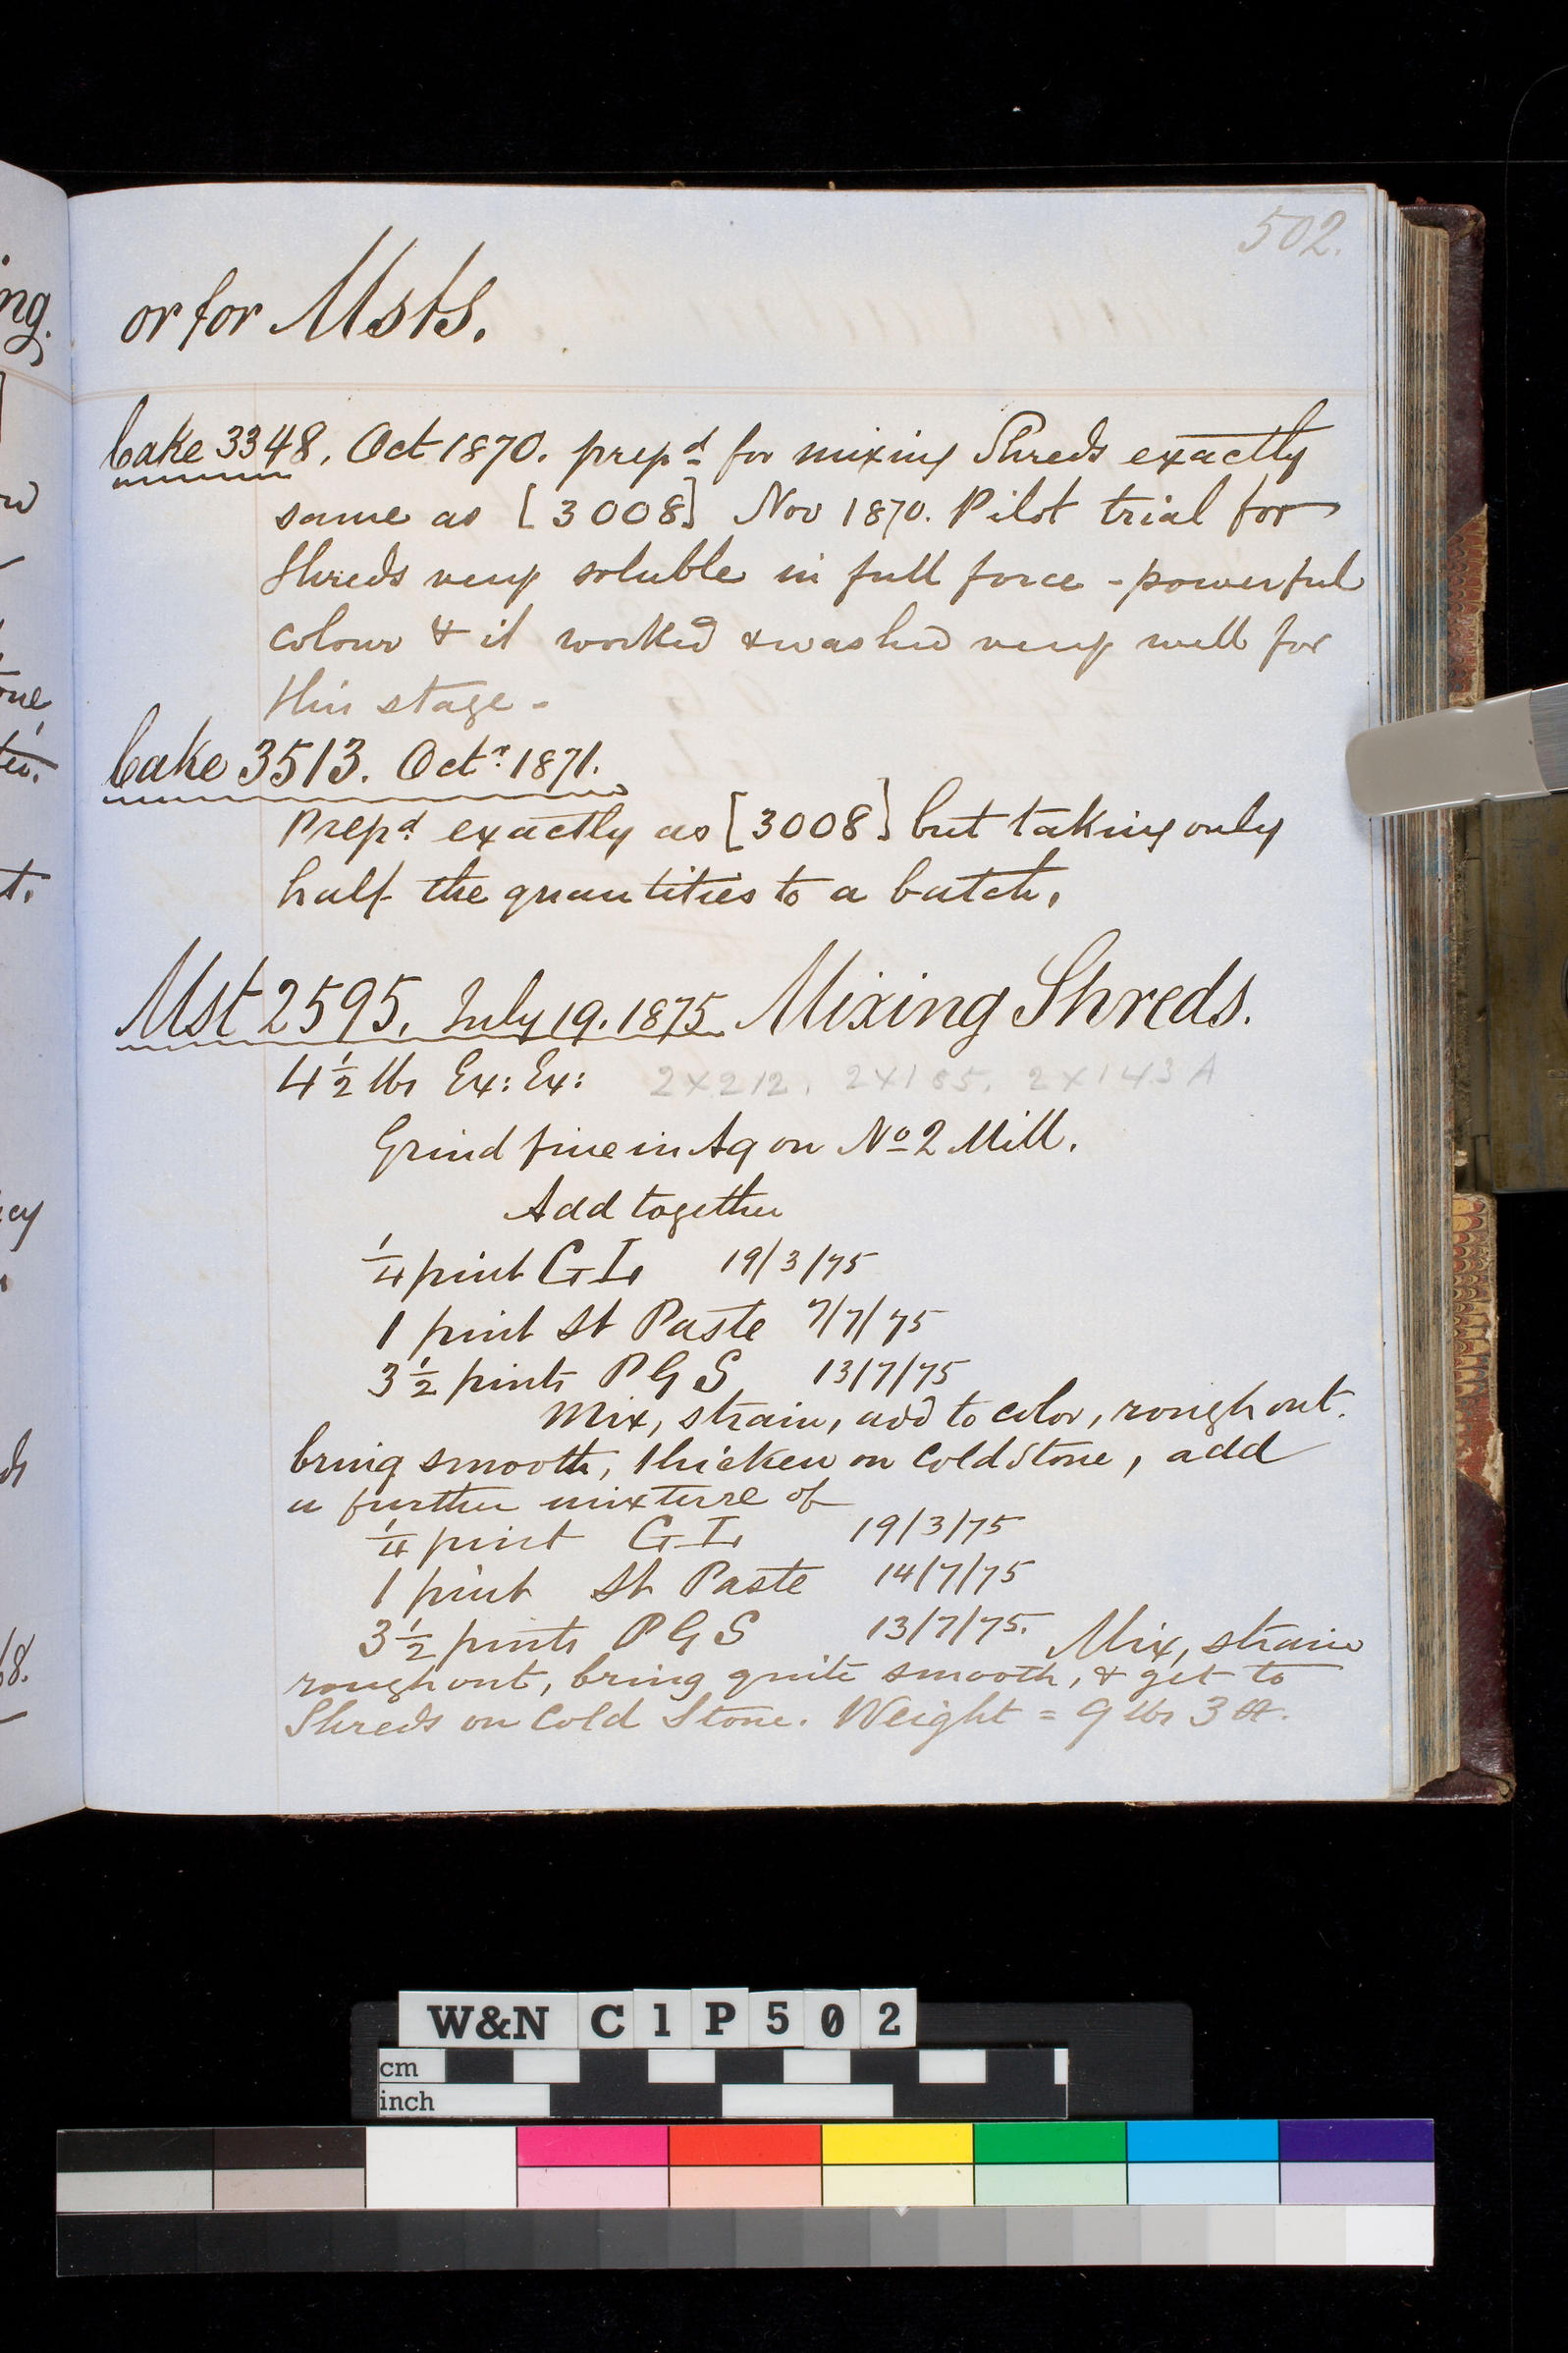 502.
or for Msts.
Cake 3348. Oct 1870. prepd for mixing Shreds exactly
same as [3008] Nov 1870. Pilot trial for
Shreds very soluble in full force - powerful
colour & it worked & washed very well for
this stage -
Cake 3513. Octr 1871.
Prepd exactly as [3008] but taking only
half the quantities to a batch.
Mst 2595. July 19. 1875 Mixing Shreds.
4½ lbs Ex: Ex: 2x212. 2x185. 2x143A
Grind fine in Aq on No 2 Mill.
Add together
¼ pint G I 19/3/75
1 pint St Paste 7/7/75
3½ pints P G S 13/7/75
Mix, strain, add to color, rough out.
bring smooth, thicken on Cold Stone, add
a further mixture of
¼ pint G I 19/3/75
1 pint St Paste 14/7/75
3½ pints P G S 13/7/75. Mix, strain
rough out, bring quite smooth, & get to
Shreds on Cold Stone. Weight = 9 lbs 3
W&N C1P502
cm
inch